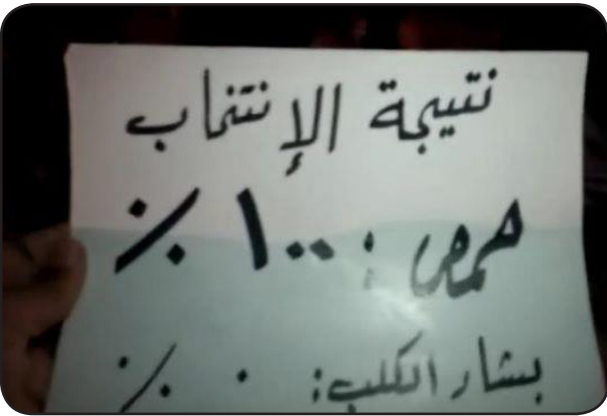 نتيجة الإنتخاب
حمص : ١٠٠ ٪
بشار الكلب: ٠ ٪